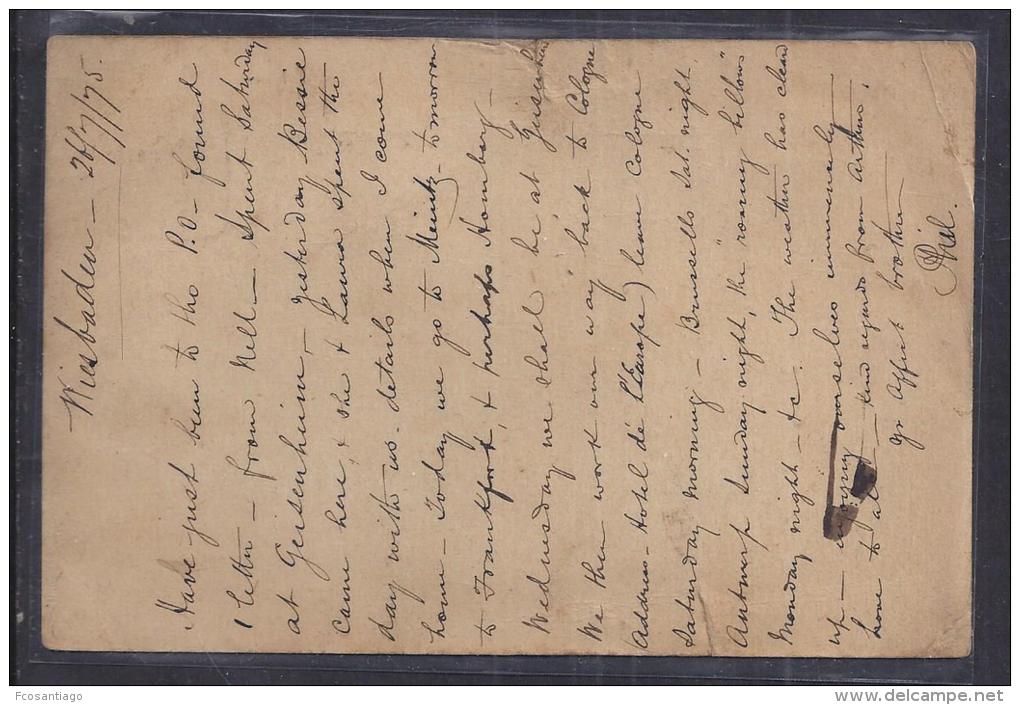 Wiesbaden - 26/7/75.
Have just been to the P.O - found
1 letter - from Nell - Spent Saturday
at Geisenheim - yesterday Bessie
came here, & she & Laura spent the
day with us - details when I come
home - Today we go to Meintz - tomorrow
to Frankfork, & perhaps Homberg -
Wednesday we shall be at Geisenheim
We then work our way back to Cologne
Address - Hotel de l'Europe) leave Cologne
Saturday morning - Brussells Sat. night
Antwerp Sunday night, the "roaring billows"
Monday night - &c. The weather has cleared
up - enjoying ourselves immensely
Love to all - kind regards from Arthur,
yr affect brother
Phil.
Fcosantiago
www.delcampe.net